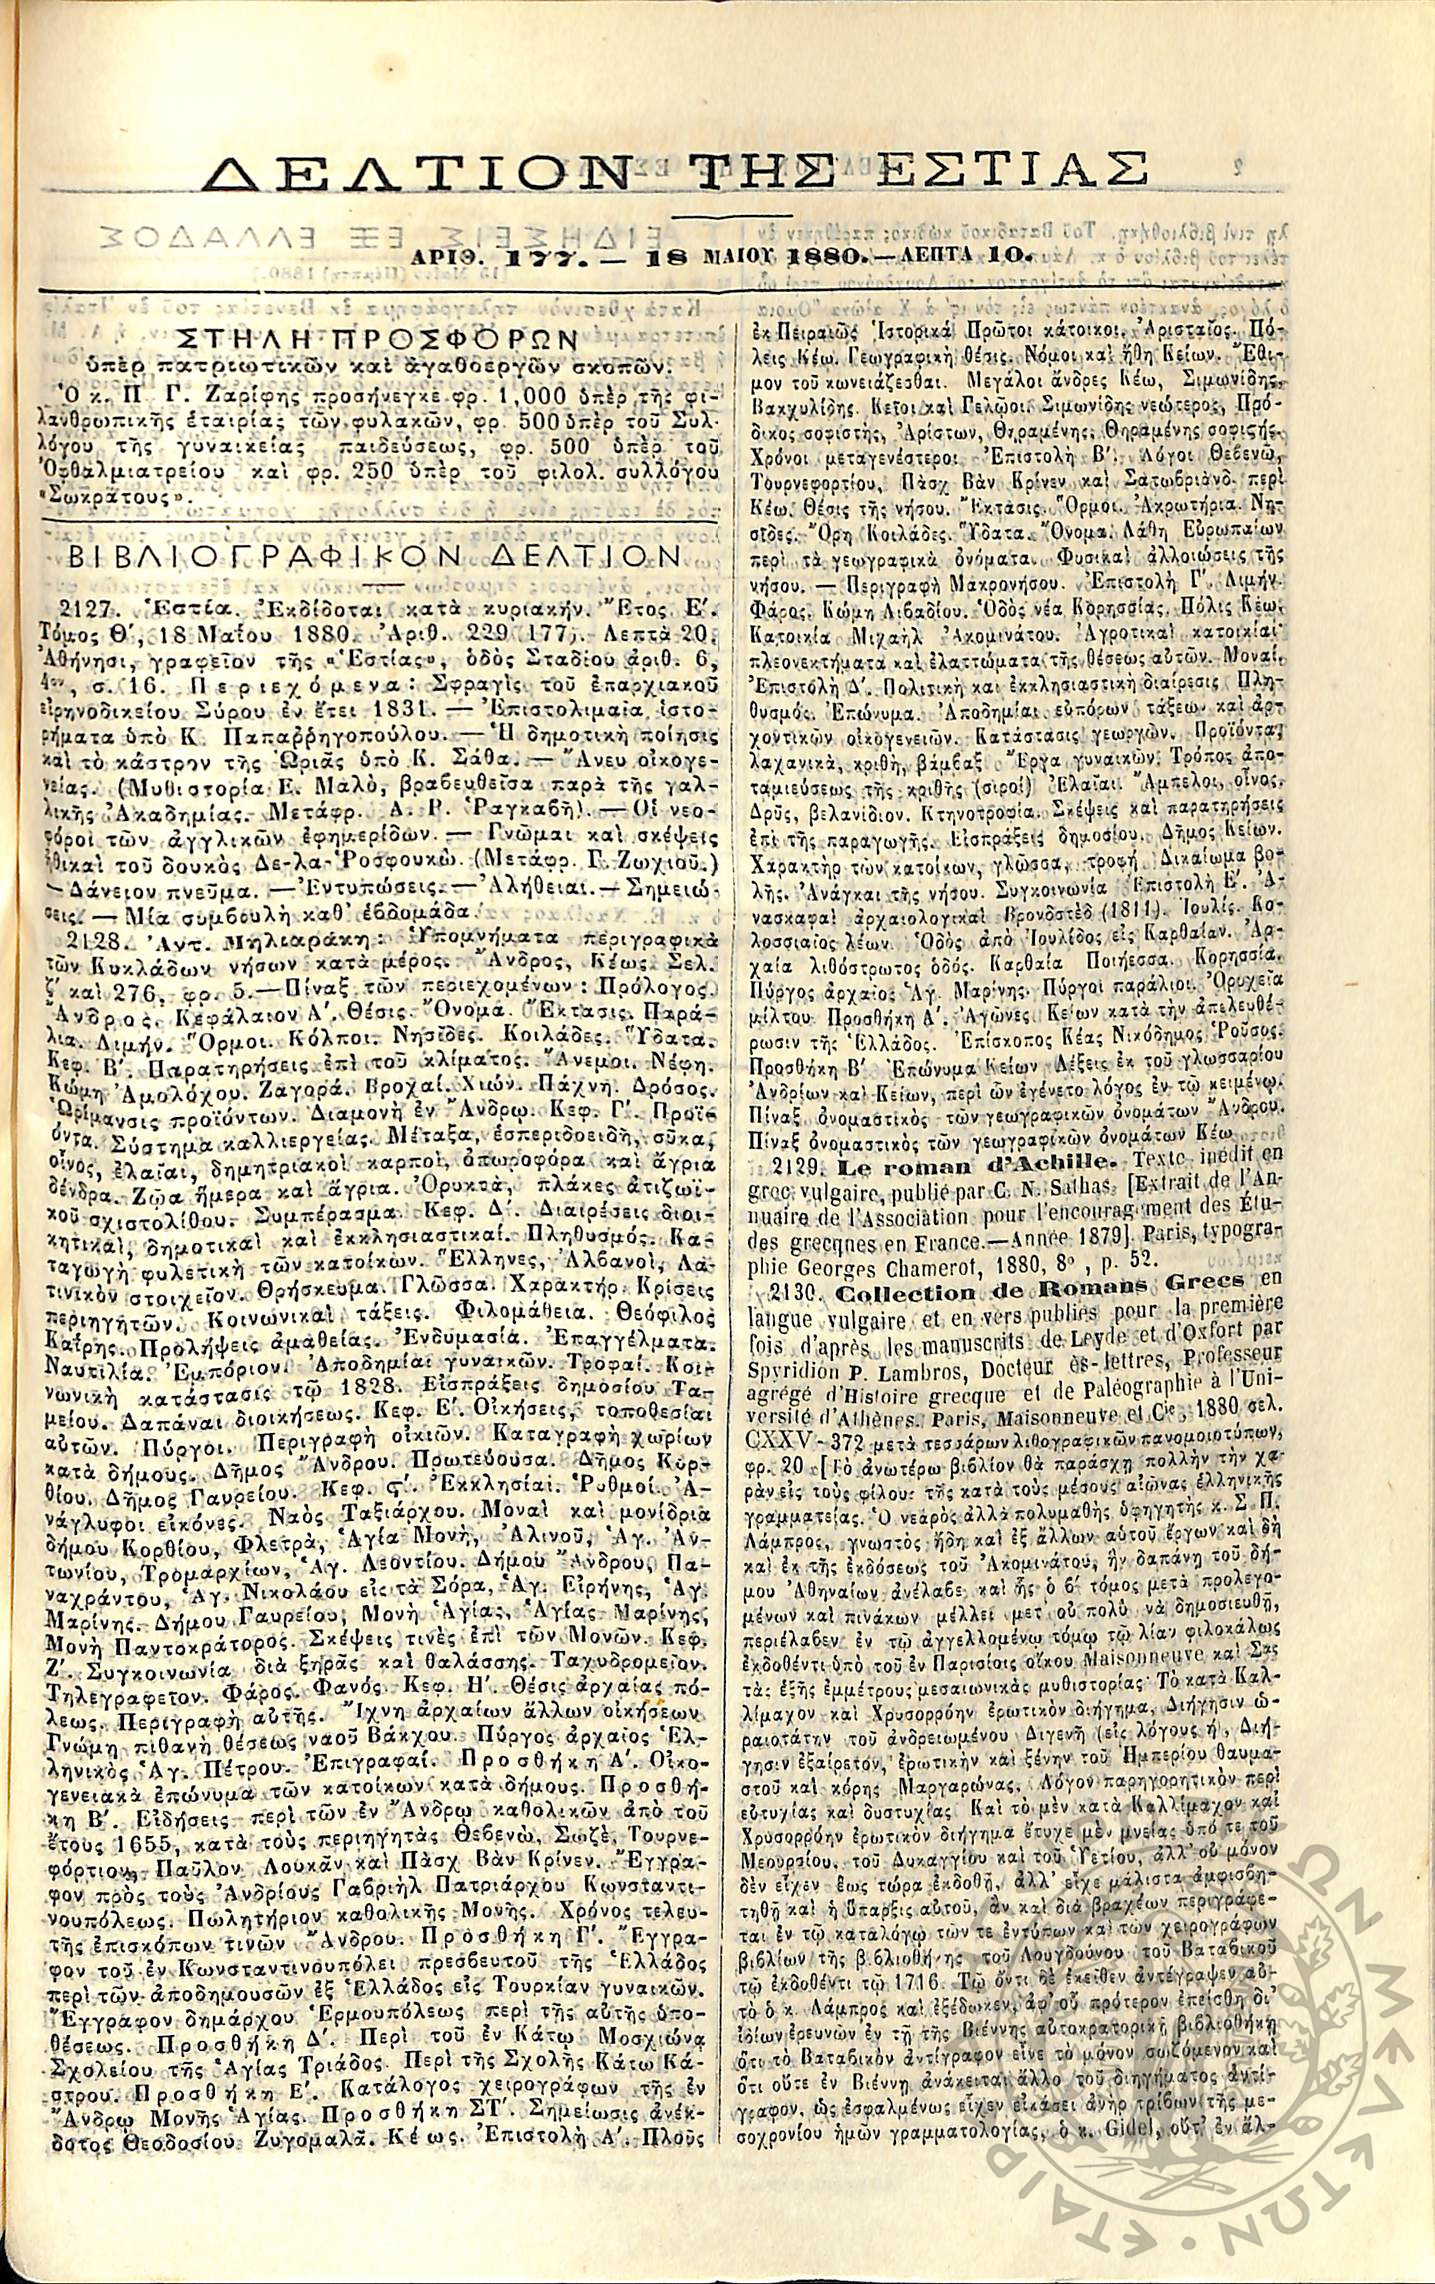 ΔΕΛΤΙΟΝ ΤΗΣ ΕΣΤΙΑΣ
ΑΡΙΘ. 177. — 18 ΜΑΙΟΥ 1880. — ΛΕΠΤΑ 10.
ΣΤΗΛΗ ΠΡΟΣΦΟΡΩΝ
ὑπὲρ πατριωτικῶν καὶ ἀγαθοεργῶν σκοπῶν.
Ὁ κ. Π Γ. Ζαρίφης προσήνεγκε φρ. 1,000 ὑπὲρ τῆς φι-
λανθρωπικῆς ἑταιρίας τῶν φυλακῶν, φρ. 500 ὑπὲρ τοῦ Συλ-
λόγου τῆς γυναικείας παιδεύσεως, φρ. 500 ὑπὲρ τοῦ
Ὀφθαλμιατρείου καὶ φρ. 250 ὑπὲρ τοῦ φιλολ. συλλόγου
«Σωκράτους».
ΒΙΒΛΙΟΓΡΑΦΙΚΟΝ ΔΕΛΤΙΟΝ
2127. Ἑστία. Ἐκδίδοται κατὰ κυριακήν. Ἔτος Ε′.
Τόμος Θ′, 18 Μαΐου 1880. Ἀριθ. 229 177). Λεπτὰ 20.
Ἀθήνησι, γραφεῖον τῆς «Ἑστίας», ὁδὸς Σταδίου ἀριθ. 6,
4ον, σ. 16. Περιεχόμενα: Σφραγὶς τοῦ ἐπαρχιακοῦ
εἰρηνοδικείου Σύρου ἐν ἔτει 1831. — Ἐπιστολιμαῖα ἱστο-
ρήματα ὑπὸ Κ. Παπαῤῥηγοπούλου. — Ἡ δημοτικὴ ποίησις
καὶ τὸ κάστρον τῆς Ὡριᾶς ὑπὸ Κ. Σάθα. — Ἄνευ οἰκογε-
νείας. (Μυθιστορία Ε. Μαλὸ, βραβευθεῖσα παρὰ τῆς γαλ-
λικῆς Ἀκαδημίας. Μετάφρ. Α. Ρ. Ῥαγκαβῆ). — Οἱ νεο-
φόροι τῶν ἀγγλικῶν ἐφημερίδων. — Γνῶμαι καὶ σκέψεις
ἠθικαὶ τοῦ δουκὸς Δε-λα-Ῥοσφουκώ. (Μετάφρ. Γ. Ζωχιοῦ.)
— Δάνειον πνεῦμα. — Ἐντυπώσεις. — Ἀλήθειαι. — Σημειώ-
σεις. — Μία συμβουλὴ καθ' ἑβδομάδα.
2128. Ἀντ. Μηλιαράκη: Ὑπομνήματα περιγραφικὰ
τῶν Κυκλάδων νήσων κατὰ μέρος. Ἄνδρος, Κέως. Σελ.
ζ′ καὶ 276, φρ. 5. — Πίναξ τῶν περιεχομένων: Πρόλογος.
Ἄνδρος. Κεφάλαιον Α′. Θέσις. Ὄνομα. Ἔκτασις. Παρά-
λια. Λιμήν. Ὅρμοι. Κόλποι. Νησῖδες. Κοιλάδες. Ὕδατα.
Κεφ. Β′. Παρατηρήσεις ἐπὶ τοῦ κλίματος. Ἄνεμοι. Νέφη.
Κώμη Ἀμολόχου. Ζαγορά. Βροχαί. Χιών. Πάχνη. Δρόσος.
Ὡρίμανσις προϊόντων. Διαμονὴ ἐν Ἄνδρῳ. Κεφ. Γ′. Προϊ-
όντα. Σύστημα καλλιεργείας. Μέταξα, ἑσπεριδοειδῆ, σῦκα,
οἶνος, ἐλαῖαι, δημητριακοὶ καρποὶ, ὀπωροφόρα καὶ ἄγρια
δένδρα. Ζῶα ἥμερα καὶ ἄγρια. Ὀρυκτὰ, πλάκες ἀτιζωϊ-
κοῦ σχιστολίθου. Συμπέρασμα. Κεφ. Δ′. Διαιρέσεις διοι-
κητικαὶ, δημοτικαὶ καὶ ἐκκλησιαστικαί. Πληθυσμός. Κα-
ταγωγὴ φυλετικὴ τῶν κατοίκων. Ἕλληνες, Ἀλβανοὶ, Λα-
τινικὸν στοιχεῖον. Θρήσκευμα. Γλῶσσα. Χαρακτήρ. Κρίσεις
περιηγητῶν. Κοινωνικαὶ τάξεις. Φιλομάθεια. Θεόφιλος
Καΐρης. Προλήψεις ἀμαθείας. Ἐνδυμασία. Ἐπαγγέλματα.
Ναυτιλία. Ἐμπόριον. Ἀποδημίαι γυναικῶν. Τροφαί. Κοι-
νωνικὴ κατάστασις τῷ 1828. Εἰσπράξεις δημοσίου Τα-
μείου. Δαπάναι διοικήσεως. Κεφ. Ε′. Οἰκήσεις, τοποθεσίαι
αὐτῶν. Πύργοι. Περιγραφὴ οἰκιῶν. Καταγραφὴ χωρίων
κατὰ δήμους. Δῆμος Ἄνδρου. Πρωτεύουσα. Δῆμος Κορ-
θίου. Δῆμος Γαυρείου. Κεφ. ς′. Ἐκκλησίαι. Ῥυθμοί. Ἀ-
νάγλυφοι εἰκόνες. Ναὸς Ταξιάρχου. Μοναὶ καὶ μονίδρια
δήμου Κορθίου, Φλετρὰ, Ἁγία Μονὴ, Ἀλινοῦ, Ἁγ. Ἀν-
τωνίου, Τρομαρχίων, Ἁγ. Λεοντίου. Δήμου Ἄνδρου, Πα-
ναχράντου, Ἁγ. Νικολάου εἰς τὰ Σόρα, Ἁγ. Εἰρήνης, Ἁγ.
Μαρίνης. Δήμου Γαυρείου, Μονὴ Ἁγίας, Ἁγίας Μαρίνης,
Μονὴ Παντοκράτορος. Σκέψεις τινὲς ἐπὶ τῶν Μονῶν. Κεφ.
Ζ′. Συγκοινωνία διὰ ξηρᾶς καὶ θαλάσσης. Ταχυδρομεῖον.
Τηλεγραφεῖον. Φάρος. Φανός. Κεφ. Η′. Θέσις ἀρχαίας πό-
λεως. Περιγραφὴ αὐτῆς. Ἴχνη ἀρχαίων ἄλλων οἰκήσεων.
Γνώμη πιθανὴ θέσεως ναοῦ Βάκχου. Πύργος ἀρχαῖος Ἑλ-
ληνικὸς Ἁγ. Πέτρου. Ἐπιγραφαί. Προσθήκη Α′. Οἰκο-
γενειακὰ ἐπώνυμα τῶν κατοίκων κατὰ δήμους. Προσθή-
κη Β′. Εἰδήσεις περὶ τῶν ἐν Ἄνδρῳ καθολικῶν ἀπὸ τοῦ
ἔτους 1655, κατὰ τοὺς περιηγητὰς Θεβενὼ, Σωζὲ, Τουρνε-
φόρτιον, Παῦλον Λουκᾶν καὶ Πὰσχ Βὰν Κρίνεν. Ἔγγρα-
φον πρὸς τοὺς Ἀνδρίους Γαβριὴλ Πατριάρχου Κωνσταντι-
νουπόλεως. Πωλητήριον καθολικῆς Μονῆς. Χρόνος τελευ-
τῆς ἐπισκόπων τινῶν Ἄνδρου. Προσθήκη Γ′. Ἔγγρα-
φον τοῦ ἐν Κωνσταντινουπόλει πρεσβευτοῦ τῆς Ἑλλάδος
περὶ τῶν ἀποδημουσῶν ἐξ Ἑλλάδος εἰς Τουρκίαν γυναικῶν.
Ἔγγραφον δημάρχου Ἑρμουπόλεως περὶ τῆς αὐτῆς ὑπο-
θέσεως. Προσθήκη Δ′. Περὶ τοῦ ἐν Κάτω Μοσχιώνᾳ
Σχολείου τῆς Ἁγίας Τριάδος. Περὶ τῆς Σχολῆς Κάτω Κά-
στρου. Προσθήκη Ε′. Κατάλογος χειρογράφων τῆς ἐν
Ἄνδρῳ Μονῆς Ἁγίας. Προσθήκη ΣΤ′. Σημείωσις ἀνέκ-
δοτος Θεοδοσίου Ζυγομαλᾶ. Κέως. Ἐπιστολὴ Α′. Πλοῦς
ἐκ Πειραιῶς Ἱστορικά Πρῶτοι κάτοικοι. Ἀρισταῖος. Πό-
λεις Κέω. Γεωγραφικὴ θέσις. Νόμοι καὶ ἤθη Κείων. Ἔθι-
μον τοῦ κωνειάζεσθαι. Μεγάλοι ἄνδρες Κέω, Σιμωνίδης,
Βακχυλίδης. Κεῖοι καὶ Γελῷοι. Σιμωνίδης νεώτερος, Πρό-
δικος σοφιστὴς, Ἀρίστων, Θηραμένης, Θηραμένης σοφιστής.
Χρόνοι μεταγενέστεροι Ἐπιστολὴ Β′. Λόγοι Θεβενὼ,
Τουρνεφορτίου, Πὰσχ Βὰν Κρίνεν καὶ Σατωβριὰνδ περὶ
Κέω. Θέσις τῆς νήσου. Ἔκτασις. Ὅρμοι. Ἀκρωτήρια. Νη-
σῖδες. Ὄρη Κοιλάδες. Ὕδατα. Ὄνομα. Λάθη Εὐρωπαίων
περὶ τὰ γεωγραφικὰ ὀνόματα. Φυσικαὶ ἀλλοιώσεις τῆς
νήσου. — Περιγραφὴ Μακρονήσου. Ἐπιστολὴ Γ′. Λιμήν.
Φάρος. Κώμη Λιβαδίου. Ὁδὸς νέα Κορησσίας. Πόλις Κέω.
Κατοικία Μιχαὴλ Ἀκομινάτου. Ἀγροτικαὶ κατοικίαι
πλεονεκτήματα καὶ ἐλαττώματα τῆς θέσεως αὐτῶν. Μοναί.
Ἐπιστολὴ Δ′. Πολιτικὴ καὶ ἐκκλησιαστικὴ διαίρεσις Πλη-
θυσμός. Ἐπώνυμα. Ἀποδημίαι εὐπόρων τάξεων καὶ ἀρ-
χοντικῶν οἰκογενειῶν. Κατάστασις γεωργῶν. Προϊόντα,
λαχανικὰ, κριθὴ, βάμβαξ Ἔργα γυναικῶν. Τρόπος ἀπο-
ταμιεύσεως τῆς κριθῆς (σιροί) Ἐλαῖαι. Ἄμπελοι, οἶνος.
Δρῦς, βελανίδιον. Κτηνοτροφία. Σκέψεις καὶ παρατηρήσεις
ἐπὶ τῆς παραγωγῆς. Εἰσπράξεις δημοσίου. Δῆμος Κείων.
Χαρακτὴρ τῶν κατοίκων, γλῶσσα, τροφή Δικαίωμα βο-
λῆς. Ἀνάγκαι τῆς νήσου. Συγκοινωνία Ἐπιστολὴ Ε′. Ἀ-
νασκαφαὶ ἀρχαιολογικαὶ Βρονδστὲδ (1811). Ἰουλίς. Κο-
λοσσιαῖος λέων. Ὁδὸς ἀπὸ Ἰουλίδος εἰς Καρθαίαν. Ἀρ-
χαία λιθόστρωτος ὁδός. Καρθαία Ποιήεσσα. Κορησσία.
Πύργος ἀρχαῖος Ἁγ. Μαρίνης. Πύργοι παράλιοι. Ὀρυχεῖα
μίλτου Προσθήκη Α′. Ἀγῶνες Κείων κατὰ τὴν ἀπελευθέ-
ρωσιν τῆς Ἑλλάδος. Ἐπίσκοπος Κέας Νικόδημος Ῥοῦσος.
Προσθήκη Β′ Ἐπώνυμα Κείων Λέξεις ἐκ τοῦ γλωσσαρίου
Ἀνδρίων καὶ Κείων, περὶ ὧν ἐγένετο λόγος ἐν τῷ κειμένῳ.
Πίναξ ὀνομαστικὸς τῶν γεωγραφικῶν ὀνομάτων Ἄνδρου.
Πίναξ ὀνομαστικὸς τῶν γεωγραφικῶν ὀνομάτων Κέω
2129. Le roman d'Achille. Texte inédit en
grec vulgaire, publié par C. N. Sathas. [Extrait de l'An-
nuaire de l'Association pour l'encouragement des Étu-
des grecques en France.—Année 1879]. Paris, typogra-
phie Georges Chamerot, 1880, 8o, p. 52.
2130. Collection de Romans Grecs en
langue vulgaire et en vers publiés pour la première
fois d'après les manuscrits de Leyde et d'Oxfort par
Spyridion P. Lambros, Docteur ès-lettres, Professeur
agrégé d'Histoire grecque et de Paléographie à l'Uni-
versité d'Athènes. Paris, Maisonneuve et Cie, 1880 σελ.
CXXV-372 μετὰ τεσσάρων λιθογραφικῶν πανομοιοτύπων,
φρ. 20 [Τὸ ἀνωτέρω βιβλίον θὰ παράσχῃ πολλὴν τὴν χα-
ρὰν εἰς τοὺς φίλους τῆς κατὰ τοὺς μέσους αἰῶνας ἑλληνικῆς
γραμματείας. Ὁ νεαρὸς ἀλλὰ πολυμαθὴς ὑφηγητὴς κ. Σ Π.
Λάμπρος, γνωστὸς ἤδη καὶ ἐξ ἄλλων αὐτοῦ ἔργων καὶ δὴ
καὶ ἐκ τῆς ἐκδόσεως τοῦ Ἀκομινάτου, ἣν δαπάνῃ τοῦ δή-
μου Ἀθηναίων ἀνέλαβε καὶ ἧς ὁ β′ τόμος μετὰ προλεγο-
μένων καὶ πινάκων μέλλει μετ' οὐ πολὺ νὰ δημοσιευθῇ,
περιέλαβεν ἐν τῷ ἀγγελλομένῳ τόμῳ τῷ λίαν φιλοκάλως
ἐκδοθέντι ὑπὸ τοῦ ἐν Παρισίοις οἴκου Maisonneuve καὶ Σας
τὰς ἑξῆς ἐμμέτρους μεσαιωνικὰς μυθιστορίας Τὸ κατὰ Καλ-
λίμαχον καὶ Χρυσορρόην ἐρωτικὸν διήγημα, Διήγησιν ὡ-
ραιοτάτην τοῦ ἀνδρειωμένου Διγενῆ (εἰς λόγους ή, Διή-
γησιν ἐξαίρετον, ἐρωτικὴν καὶ ξένην τοῦ Ἡμπερίου θαυμα-
στοῦ καὶ κόρης Μαργαρώνας, Λόγον παρηγορητικὸν περὶ
εὐτυχίας καὶ δυστυχίας Καὶ τὸ μὲν κατὰ Καλλίμαχον καὶ
Χρυσορρόην ἐρωτικὸν διήγημα ἔτυχε μὲν μνείας ὑπό τε τοῦ
Μεουρσίου, τοῦ Δυκαγγίου καὶ τοῦ Ὑετίου, ἀλλ' οὐ μόνον
δὲν εἶχεν ἕως τώρα ἐκδοθῆ, ἀλλ' εἶχε μάλιστα ἀμφισβη-
τηθῆ καὶ ἡ ὕπαρξις αὐτοῦ, ἂν καὶ διὰ βραχέων περιγράφε-
ται ἐν τῷ καταλόγῳ τῶν τε ἐντύπων καὶ τῶν χειρογράφων
βιβλίων τῆς βιβλιοθήκης τοῦ Λουγδούνου τοῦ Βαταβικοῦ
τῷ ἐκδοθέντι τῷ 1716. Τῷ ὄντι δὲ ἐκεῖθεν ἀντέγραψεν αὐ-
τὸ ὁ κ. Λάμπρος καὶ ἐξέδωκεν, ἀφ' οὗ πρότερον ἐπείσθη δι'
ἰδίων ἐρευνῶν ἐν τῇ τῆς Βιέννης αὐτοκρατορικῇ βιβλιοθήκῃ
ὅτι τὸ Βαταβικὸν ἀντίγραφον εἶνε τὸ μόνον σωζόμενον καὶ
ὅτι οὔτε ἐν Βιέννῃ ἀνάκειται ἄλλο τοῦ διηγήματος ἀντί-
γραφον, ὡς ἐσφαλμένως εἶχεν εἰκάσει ἀνὴρ τρίβων τῆς με-
σοχρονίου ἡμῶν γραμματολογίας, ὁ κ. Gidel, οὔτ' ἐν ἄλ-